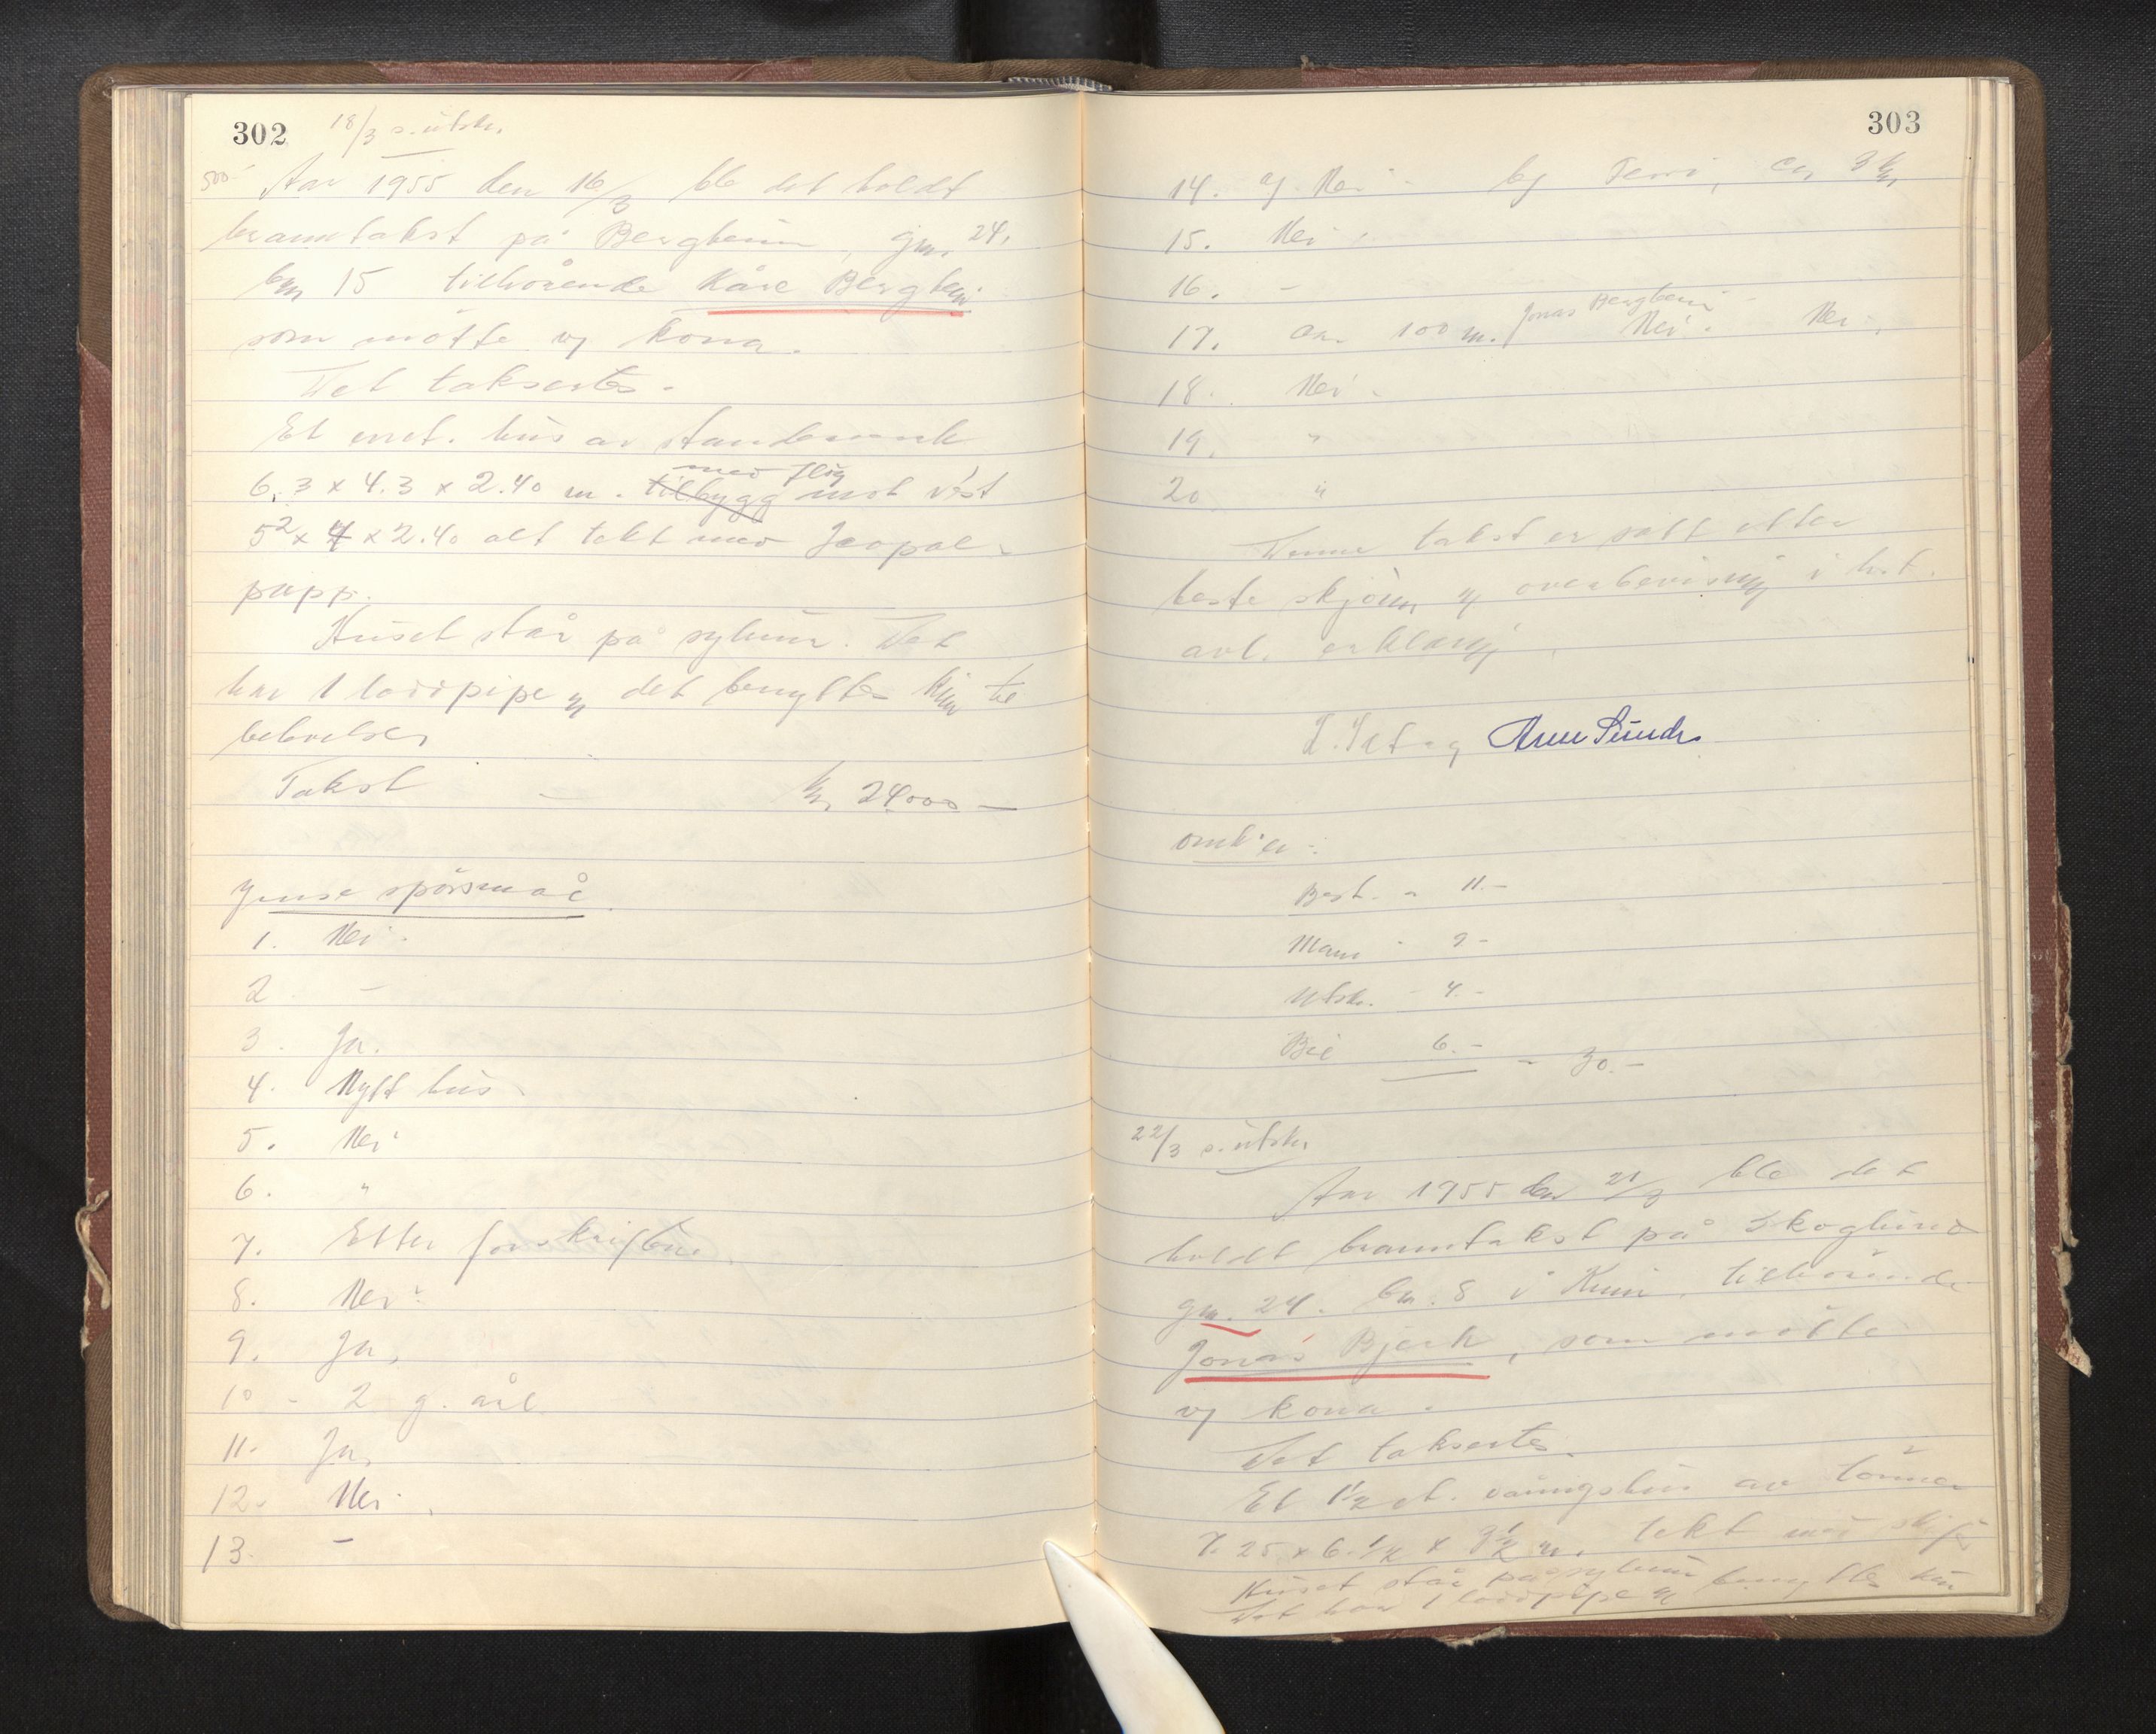 302
18/3 s. utskr.
500
Aar 1955 den 16/3 ble det holdt
branntakst på Bergheim, gnr. 24,
bnr 15 tilhørende Kåre Bergheim
som møtte v/ kona.
Det taksertes.
Et enet. hus av standerverk
med fløy
6,3 x 4.3 x 2.40 m. tilbygg mot vést
5² x 4 x 2.40 alt tekt med Icopal-
papp.
Huset står på sylmur. Det
har 1 loddpipe og det benyttes kun til
beboelse.
Takst - kr. 24000 —
Jmse spörsmål
1. Nei.
2 -
3. Ja.
4. Nytt hus
5. Nei
6. "
7. Etter forskriftene.
8. Nei
9. Ja,
10 - 2 g. årl
11. Ja,
12. Nei.
13. -
303
14. a/ Nei. b/ ca. 3 km
15. Nei.
16. -
Jonas Bergheim
17. Ca. 100 m. Nei. Nei.
18. Nei.
19. "
20 "
Denne takst er satt etter
beste skjønn og overbevisning i h.t.
avl. erklæring.
Arne Sunde
omk'er:
Best. - 11.-
Mann - 9-
Utskr. - 4.-
Bil 6.- - 30.-
22/3 s. utskr
Aar 1955 den 21/3 ble det
holdt branntakst på Skoglund
gnr. 24. bnr. 8 i tilhørende
Jonas Bjerk, som møtte
v/ kona.
Det taksertes.
Et 1½ et. våningshus av tømmer
7.25 x 6.½ x 3½ m. tekt med skifer
Huset står på sylmur
Det har 1 loddpipe og benyttes kun